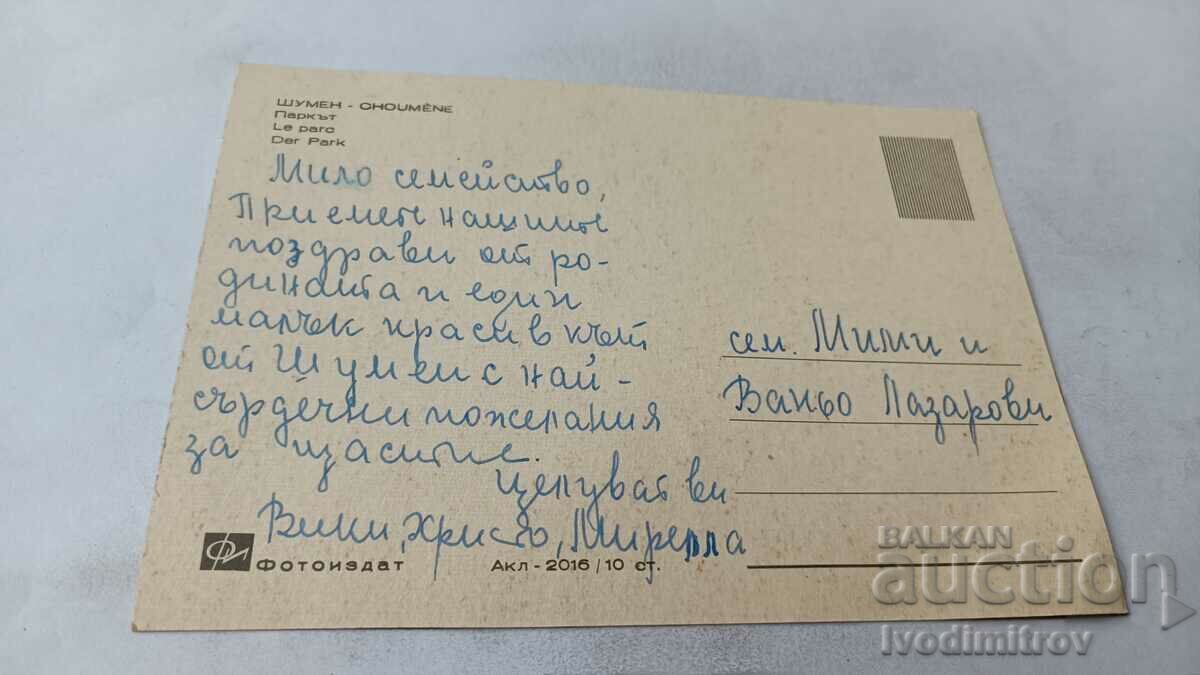 ШУМЕН - CHOUMÈNE
Паркът
Le parc
Der Park
Мило семейство,
Приемете нашите
поздрави от ро-
дината и един
малък красив кът
от Шумен с най-
сърдечни пожелания
за щастие.
Целуват ви
Вили, Христо, Мирелла
сем. Мими и
Ваньо Лазарови
Фотоиздат
Акл - 2016 / 10 ст.
BALKAN
auction
Ivodimitrov